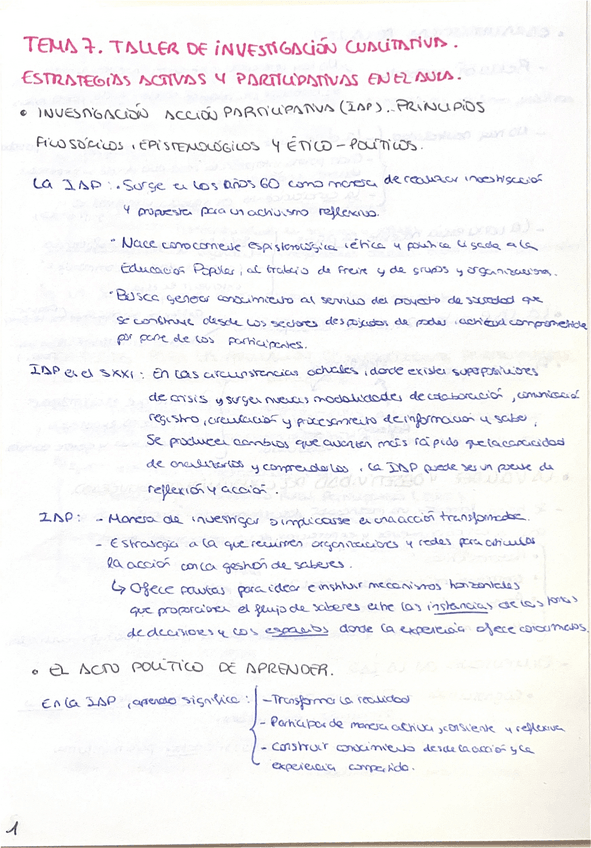 TEMA 7. TALLER DE INVESTIGACIÓN CUALITATIVA.
ESTRATEGIAS ACTIVAS Y PARTICIPATIVAS EN EL AULA.
• INVESTIGACIÓN ACCIÓN PARTICIPATIVA (IAP). PRINCIPIOS
FILOSÓFICOS, EPISTEMOLÓGICOS Y ÉTICO-POLÍTICOS.
LA IAP: · Surge en los años 60 como manera de realizar investigación
y propuesta para un activismo reflexivo.
· Nace como corriente epistemológica, ética y política ligada a la
Educación Popular, al trabajo de Freire y de grupos y organizaciones.
· Busca generar conocimiento al servicio del proyecto de sociedad que
se construye desde los sectores despojados de poder. actividad comprometida
por parte de los participantes.
IAP en el SXXI: En las circunstancias actuales, donde existen superposiciones
de crisis y surgen nuevas modalidades de colaboración, comunicación
registro, circulación y procesamiento de información y saber,
se producen cambios que avanzan más rápido que la capacidad
de analizarlos y comprenderlos. La IAP puede ser un puente de
reflexión y acción.
IAP: - Manera de investigar o implicarse en una acción transformadora.
- Estrategia a la que recurren organizaciones y redes para articular
la acción con la gestión de saberes.
↳ Ofrece pautas para idear e instituir mecanismos horizontales
que proporcionen el flujo de saberes entre las instancias de las tomas
de decisiones y los espacios donde la experiencia ofrece conocimientos.
• EL ACTO POLÍTICO DE APRENDER.
En la IAP, aprender significa: - Transformar la realidad
- Participar de manera activa, consciente y reflexiva
- Construir conocimiento desde la acción y la
experiencia compartida.
1